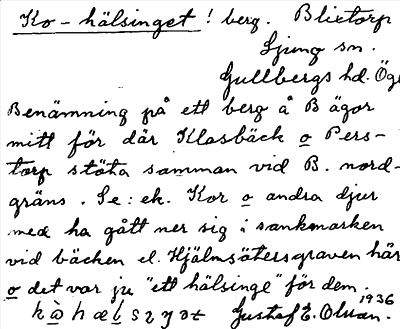 Ko-hälsinget! berg. Blixtorp
Ljung sn.
Gullbergs hd. Ög.
Benämning på ett berg å B ägor
mitt för där Klasbäck o Pers-
torp stöta samman vid B. nord-
gräns. Se: ek. Kor o andra djur
med ha gått ner sig i sankmarken
vid bäcken el. Hjälmsätersgraven här
o det var ju "ett hälsinge" för dem.
Gustaf E. Olsson. 1936